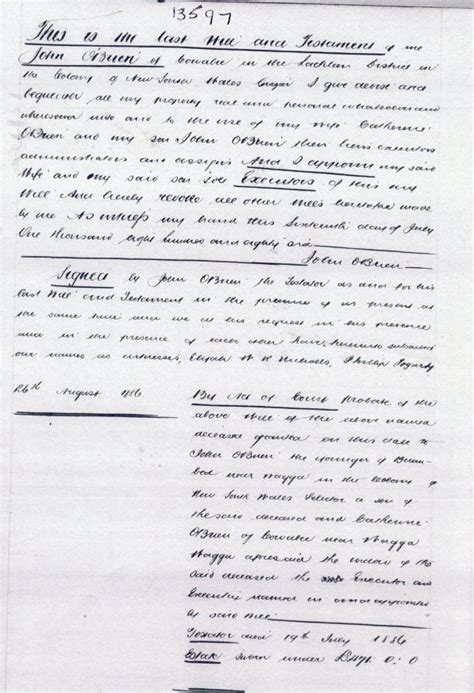 13597
This is the last Will and Testament of me
John O'Brien of Cowabee in the Lachlan District in
the Colony of New South Wales I give devise and
bequeath all my property real and personal whatsoever and
wheresoever unto and to the use of my wife Catherine
O'Brien and my son John O'Brien their heirs executors
administrators and assigns And I appoint my said
Wife and my said son John Executors of this my
Will And hereby revoke all other Wills heretofore made
by me As witness my hand this Sixteenth day of July
One thousand eight hundred and eighty six
John O'Brien
Signed by John O'Brien the Testator as and for his
last Will and Testament in the presence of us present at
the same time and we at his request in his presence
and in the presence of each other have hereunto subscribed
our names as witnesses, W. H. Nicholls, Phillip Fogarty
26th August 1886
By Act of Court probate of the
above Will of the above named
deceased granted on this date to
John O'Brien the younger of
near Wagga in the Colony of
New South Wales Selector a son of
the said deceased and Catherine
O'Brien of Cowabee near Wagga
Wagga aforesaid the widow of the
said deceased the Executor and
Executrix named in and appointed
by said Will
Testator died 19th July 1886
Estate sworn under